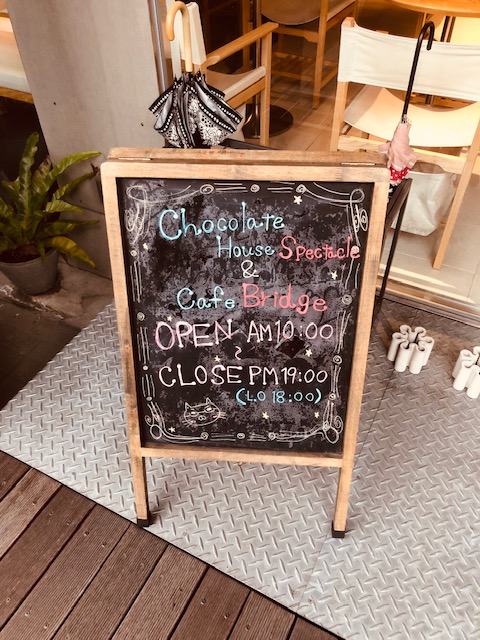 Chocolate
House Spectacle
&
Cafe Bridge
OPEN AM10:00
~
CLOSE PM19:00
(L.O 18:00)